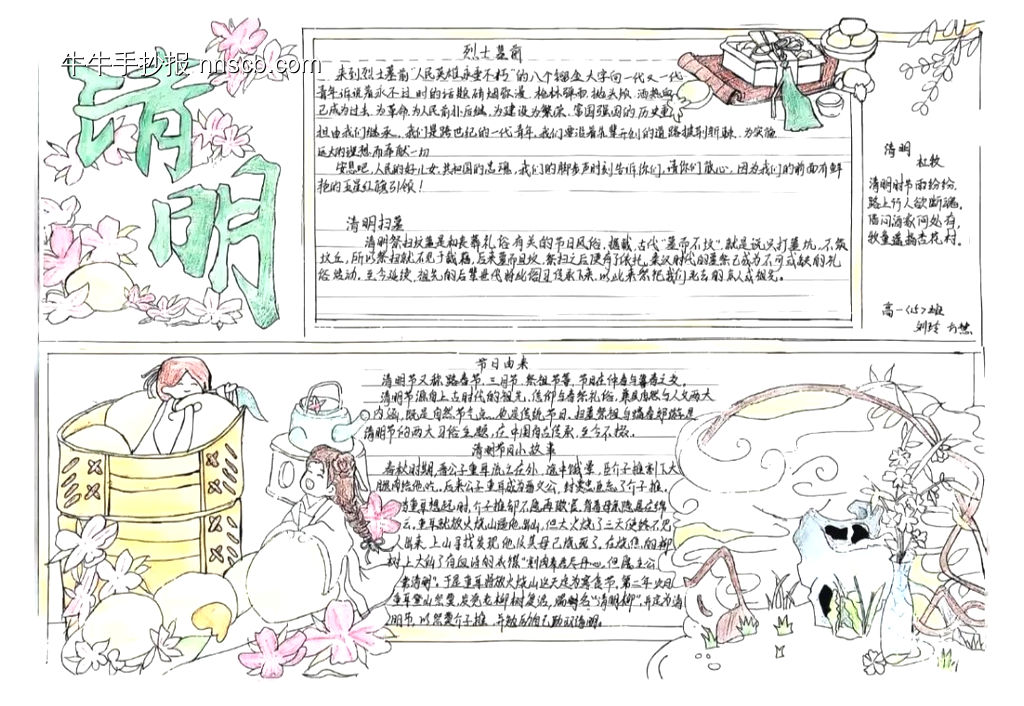 牛牛手抄报 nnscb.com
清明
烈士墓前
来到烈士墓前"人民英雄永垂不朽"的八个镏金大字向一代又一代
青年诉说着永不过时的话题硝烟弥漫。枪林弹雨抛头颅 洒热血
已成为过去 为革命为人民前扑后继 为建设为繁荣、富国强国的历史重
担由我们继承。我们是跨世纪的一代青年,我们要沿着先辈开创的道路披荆斩棘
远大的理想而奉献一切
安息吧,人民的好儿女,共和国的忠魂,我们的脚步声时刻告诉你们,请你们放心,因为我们的前面有鲜
艳的五星红旗引领!
清明扫墓
清明祭扫坟墓是和丧葬礼俗有关的节日风俗。据载,古代"墓而不坟",就是说只打墓坑,不筑
坟丘,所以祭扫就不见于载籍。后来墓而且坟,祭扫之后便有了依托。秦汉时代的墓祭已成为不可或缺的礼
俗活动。至今延续,祖先的后辈世代将此俗习传承下来,以此来祭祀我们死去的亲人或祖先。
清明
杜牧
清明时节雨纷纷,
路上行人欲断魂。
借问酒家何处有,
牧童遥指杏花村。
高一<15>班
节日由来
清明节又称踏春节、三月节、祭祖节等,节日在仲春与暮春之交。
清明节源自上古时代的祖先信仰与春祭礼俗,兼具自然与人文两大
内涵,既是自然节气点,也是传统节日,扫墓祭祖与踏春郊游是
清明节的两大习俗主题,在中国自古传承,至今不辍。
清明节日小故事
春秋时期,晋公子重耳流亡在外,途中饿晕,臣介子推割了大
腿肉给他吃。后来公子重耳成为晋文公,封赏忠臣忘了介子推。
重耳想起时,介子推却不愿再做官,背着母亲隐居在绵
重耳就放火烧山逼他出山,但大火烧了三天便终不见
人出来,上山寻找发现他及其母已烧死了。在烧焦的柳
树上大叫了有血诗的衣襟"割肉奉君尽丹心,但愿主公
清明"。于是重耳将放火烧山这天定为寒食节。第二年次日
重耳登山祭奠,见死老柳树复活,赐树名"清明柳",并定为清
明节,以祭奠介子推,并勉励自己勤政清明。